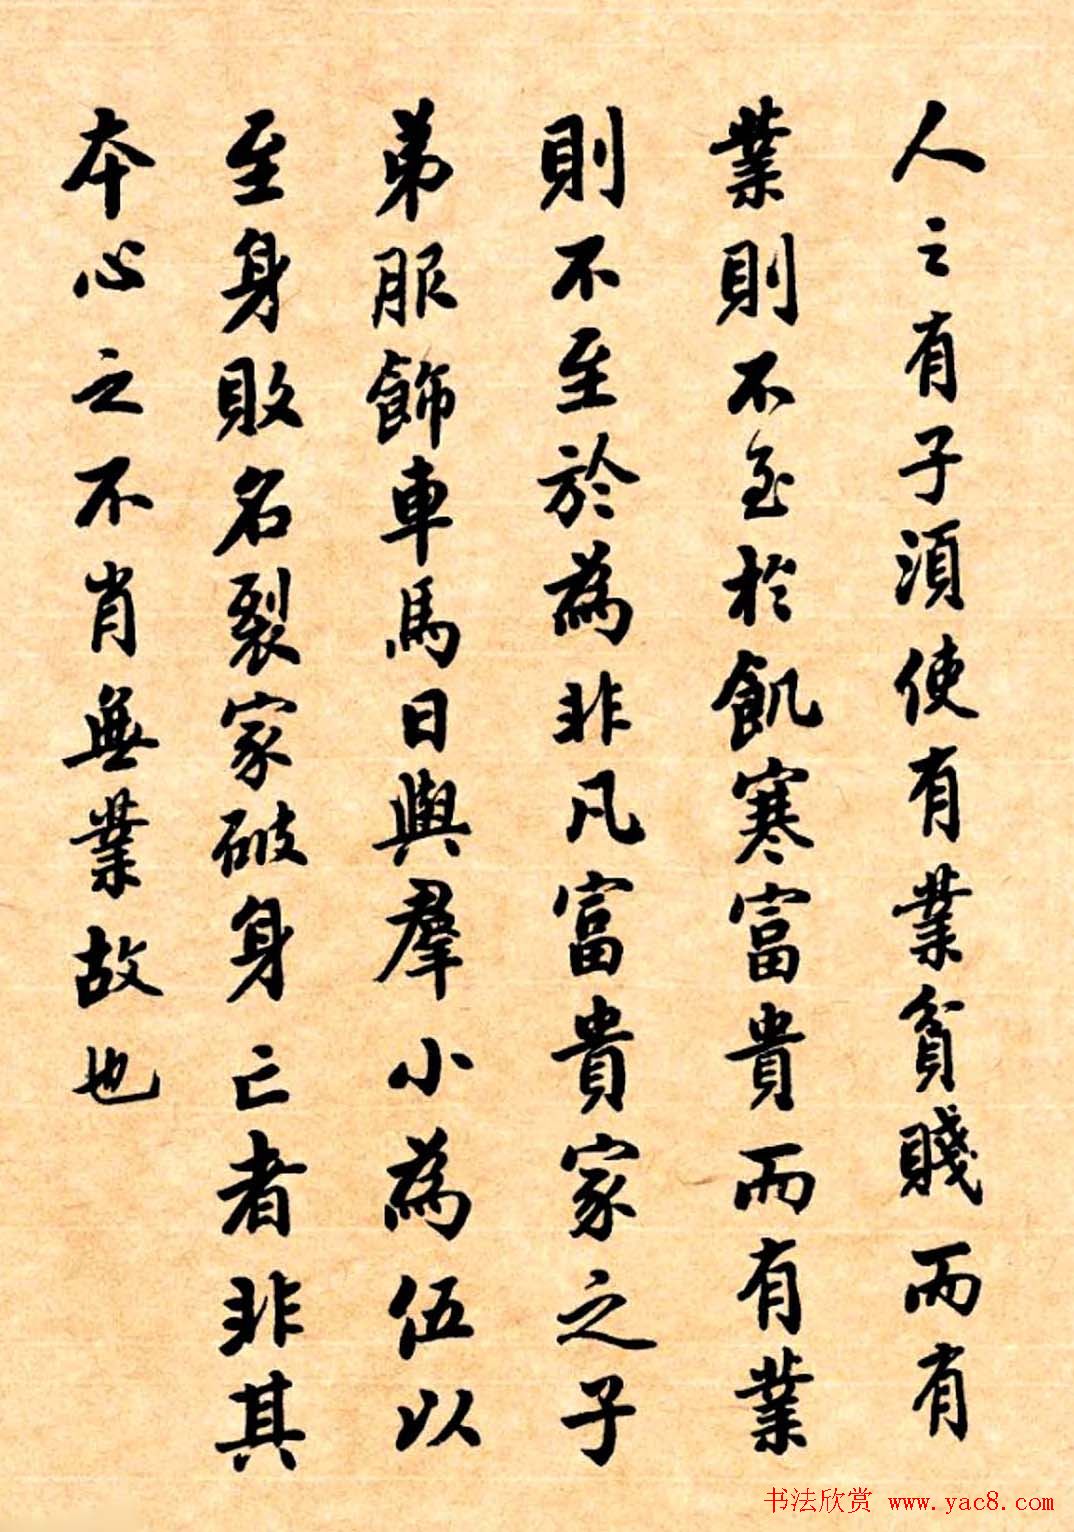 人之有子須使有業貧賤而有
業則不至於飢寒富貴而有業
則不至於為非凡富貴家之子
弟服飾車馬日與羣小為伍以
至身敗名裂家破身亡者非其
本心之不肖無業故也
书法欣赏 www.yac8.com